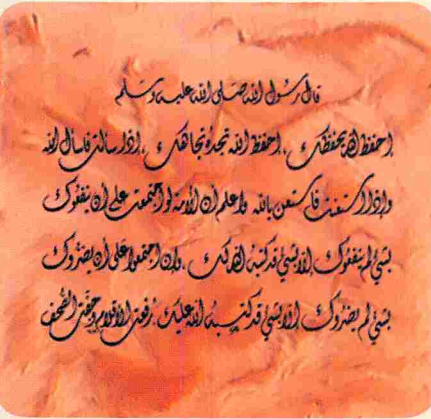 قال رسول الله صلى الله عليه وسلم
إحفظ الله يحفظك ، إحفظ الله تجده تجاهك ، إذا سألت فاسأل الله
وإذا استعنت فاستعن بالله واعلم أن الأمة لو اجتمعت على أن ينفعوك
بشيء لم ينفعوك إلا بشيء قد كتبه الله لك ، وإن اجتمعوا على أن يضروك
بشيء لم يضروك إلا بشيء قد كتبه الله عليك رفعت الأقلام وجفت الصحف